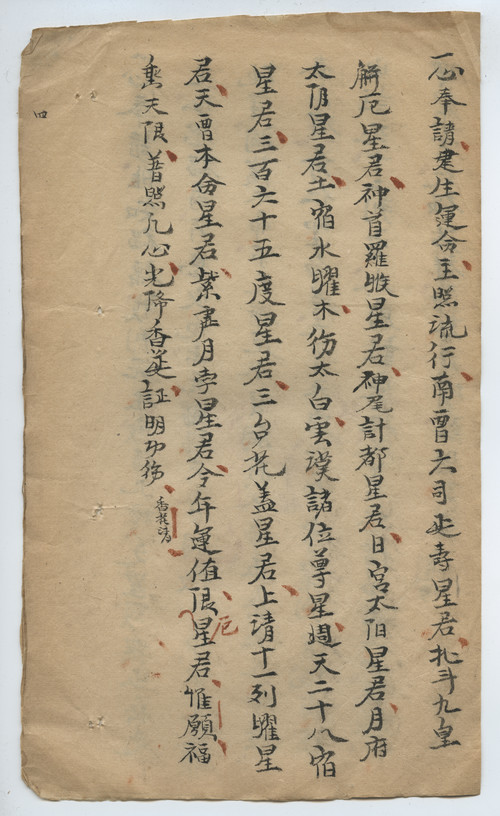 一心奉請建生運命主照流行南曹六司延壽星君北斗九皇
解厄星君神首羅睺星君神尾計都星君日宮太阳星君月府
太阴星君土宿水曜木德太白雲漢諸位尊星週天二十八宿
星君三百六十五度星君三台花盖星君上請十一列曜星
君天曹本命星君紫炁月孛星君今年運值限厄星君惟願福
天限普照凡心光降香筵証明功德香花請
四